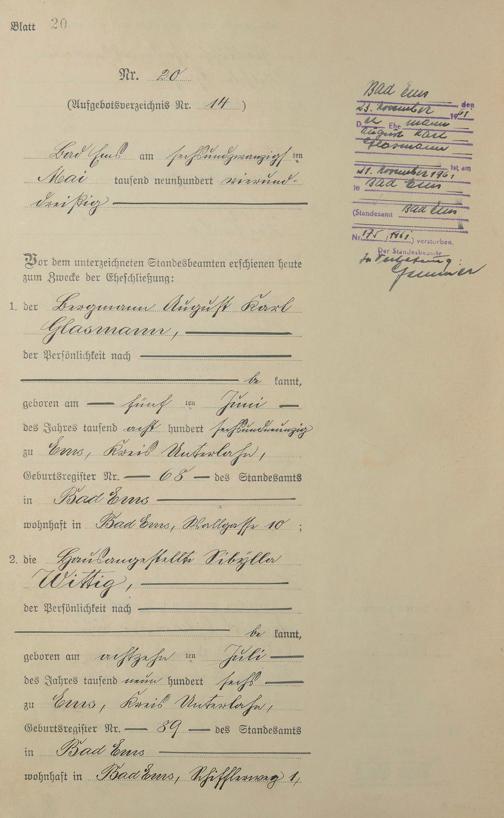 Blatt 20
Nr. 20
(Aufgebotsverzeichnis Nr. 14)
Bad Ems am sechsundzwanzigsten
Mai tausend neunhundert vierund-
dreißig
Vor dem unterzeichneten Standesbeamten erschienen heute
zum Zwecke der Eheschließung:
1. der Bergmann August Karl
Glasmann,
der Persönlichkeit nach
be kannt,
geboren am fünften Juni
des Jahres tausend acht hundert sechsundneunzig
zu Ems, Kreis Unterlahn,
Geburtsregister Nr. 68 des Standesamts
in Bad Ems
wohnhaft in Bad Ems, Wallgasse 10 ;
2. die Hausangestellte Sibylla
Wittig,
der Persönlichkeit nach
be kannt,
geboren am achtzehnten Juli
des Jahres tausend neun hundert sechs
zu Ems, Kreis Unterlahn,
Geburtsregister Nr. 89 des Standesamts
in Bad Ems
wohnhaft in Bad Ems, Schifflerweg 1,
Bad Ems, den
23. November 1961
Der Ehemann
August Karl
Glasmann
ist am
21. November 1961
in Bad Ems
(Standesamt Bad Ems
Nr. 175/1961) verstorben.
Der Standesbeamte
In Vertretung: